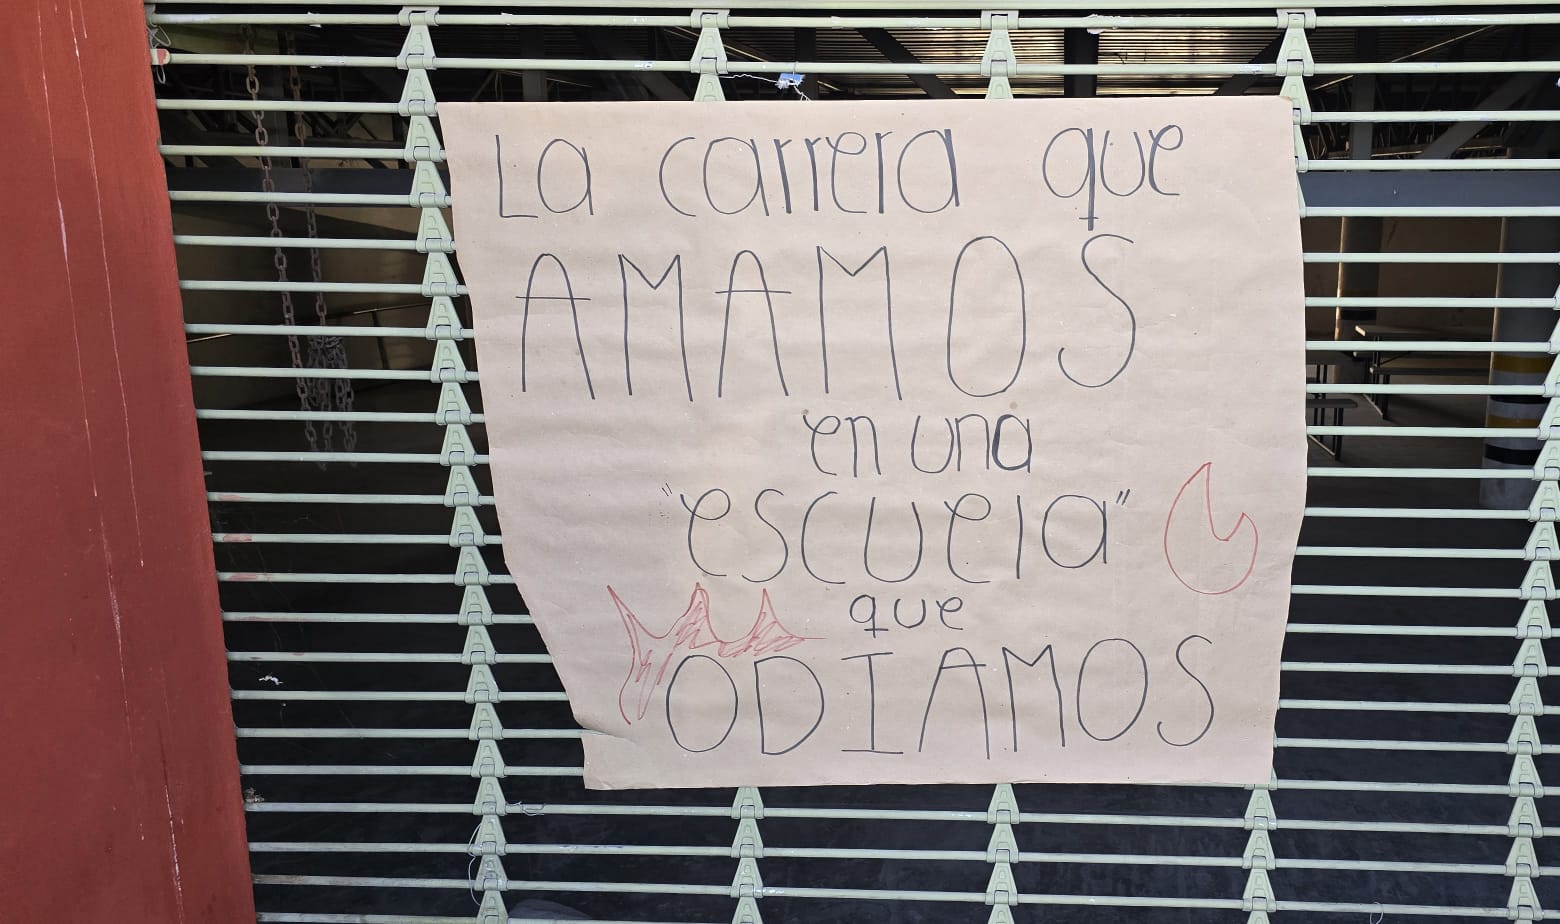 La carrera que
AMAMOS
en una
"escuela"
que
ODIAMOS